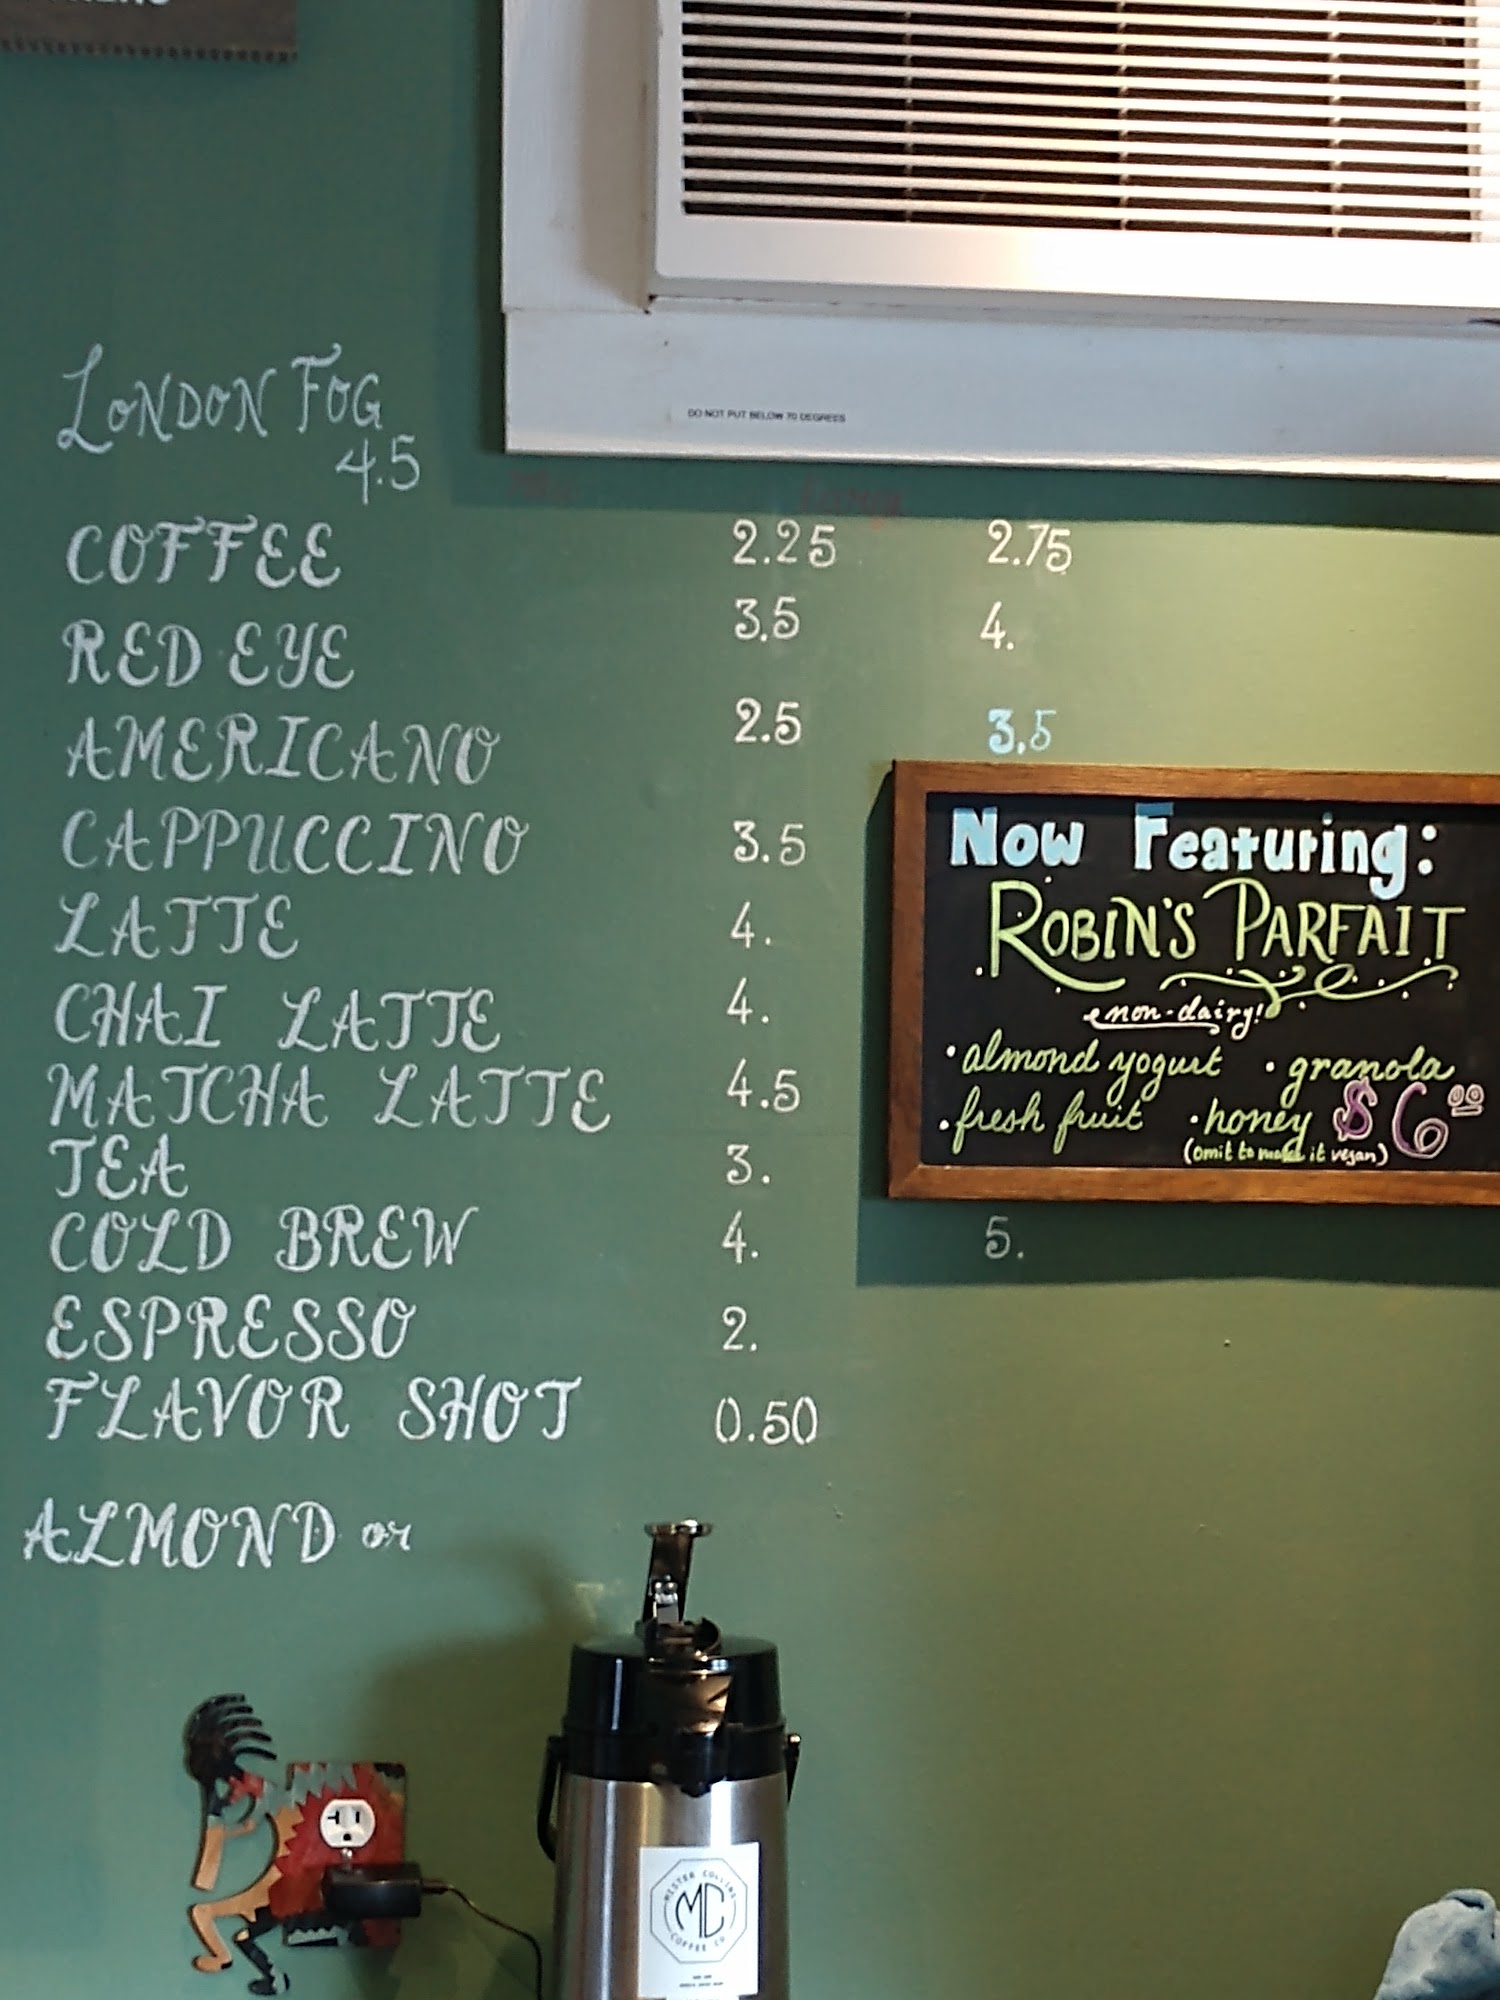 DO NOT PUT BELOW 70 DEGREES
LONDON FOG
4.5
COFFEE 2.25 2.75
RED EYE 3.5 4.
AMERICANO 2.5 3.5
CAPPUCCINO 3.5
LATTE 4.
CHAI LATTE 4.
MATCHA LATTE 4.5
TEA 3.
COLD BREW 4. 5.
ESPRESSO 2.
FLAVOR SHOT 0.50
ALMOND or
Now Featuring:
ROBIN'S PARFAIT
non-dairy!
• almond yogurt • granola
• fresh fruit • honey $6.00
(omit to make it vegan)
MISTER COLLINS
MC
COFFEE CO